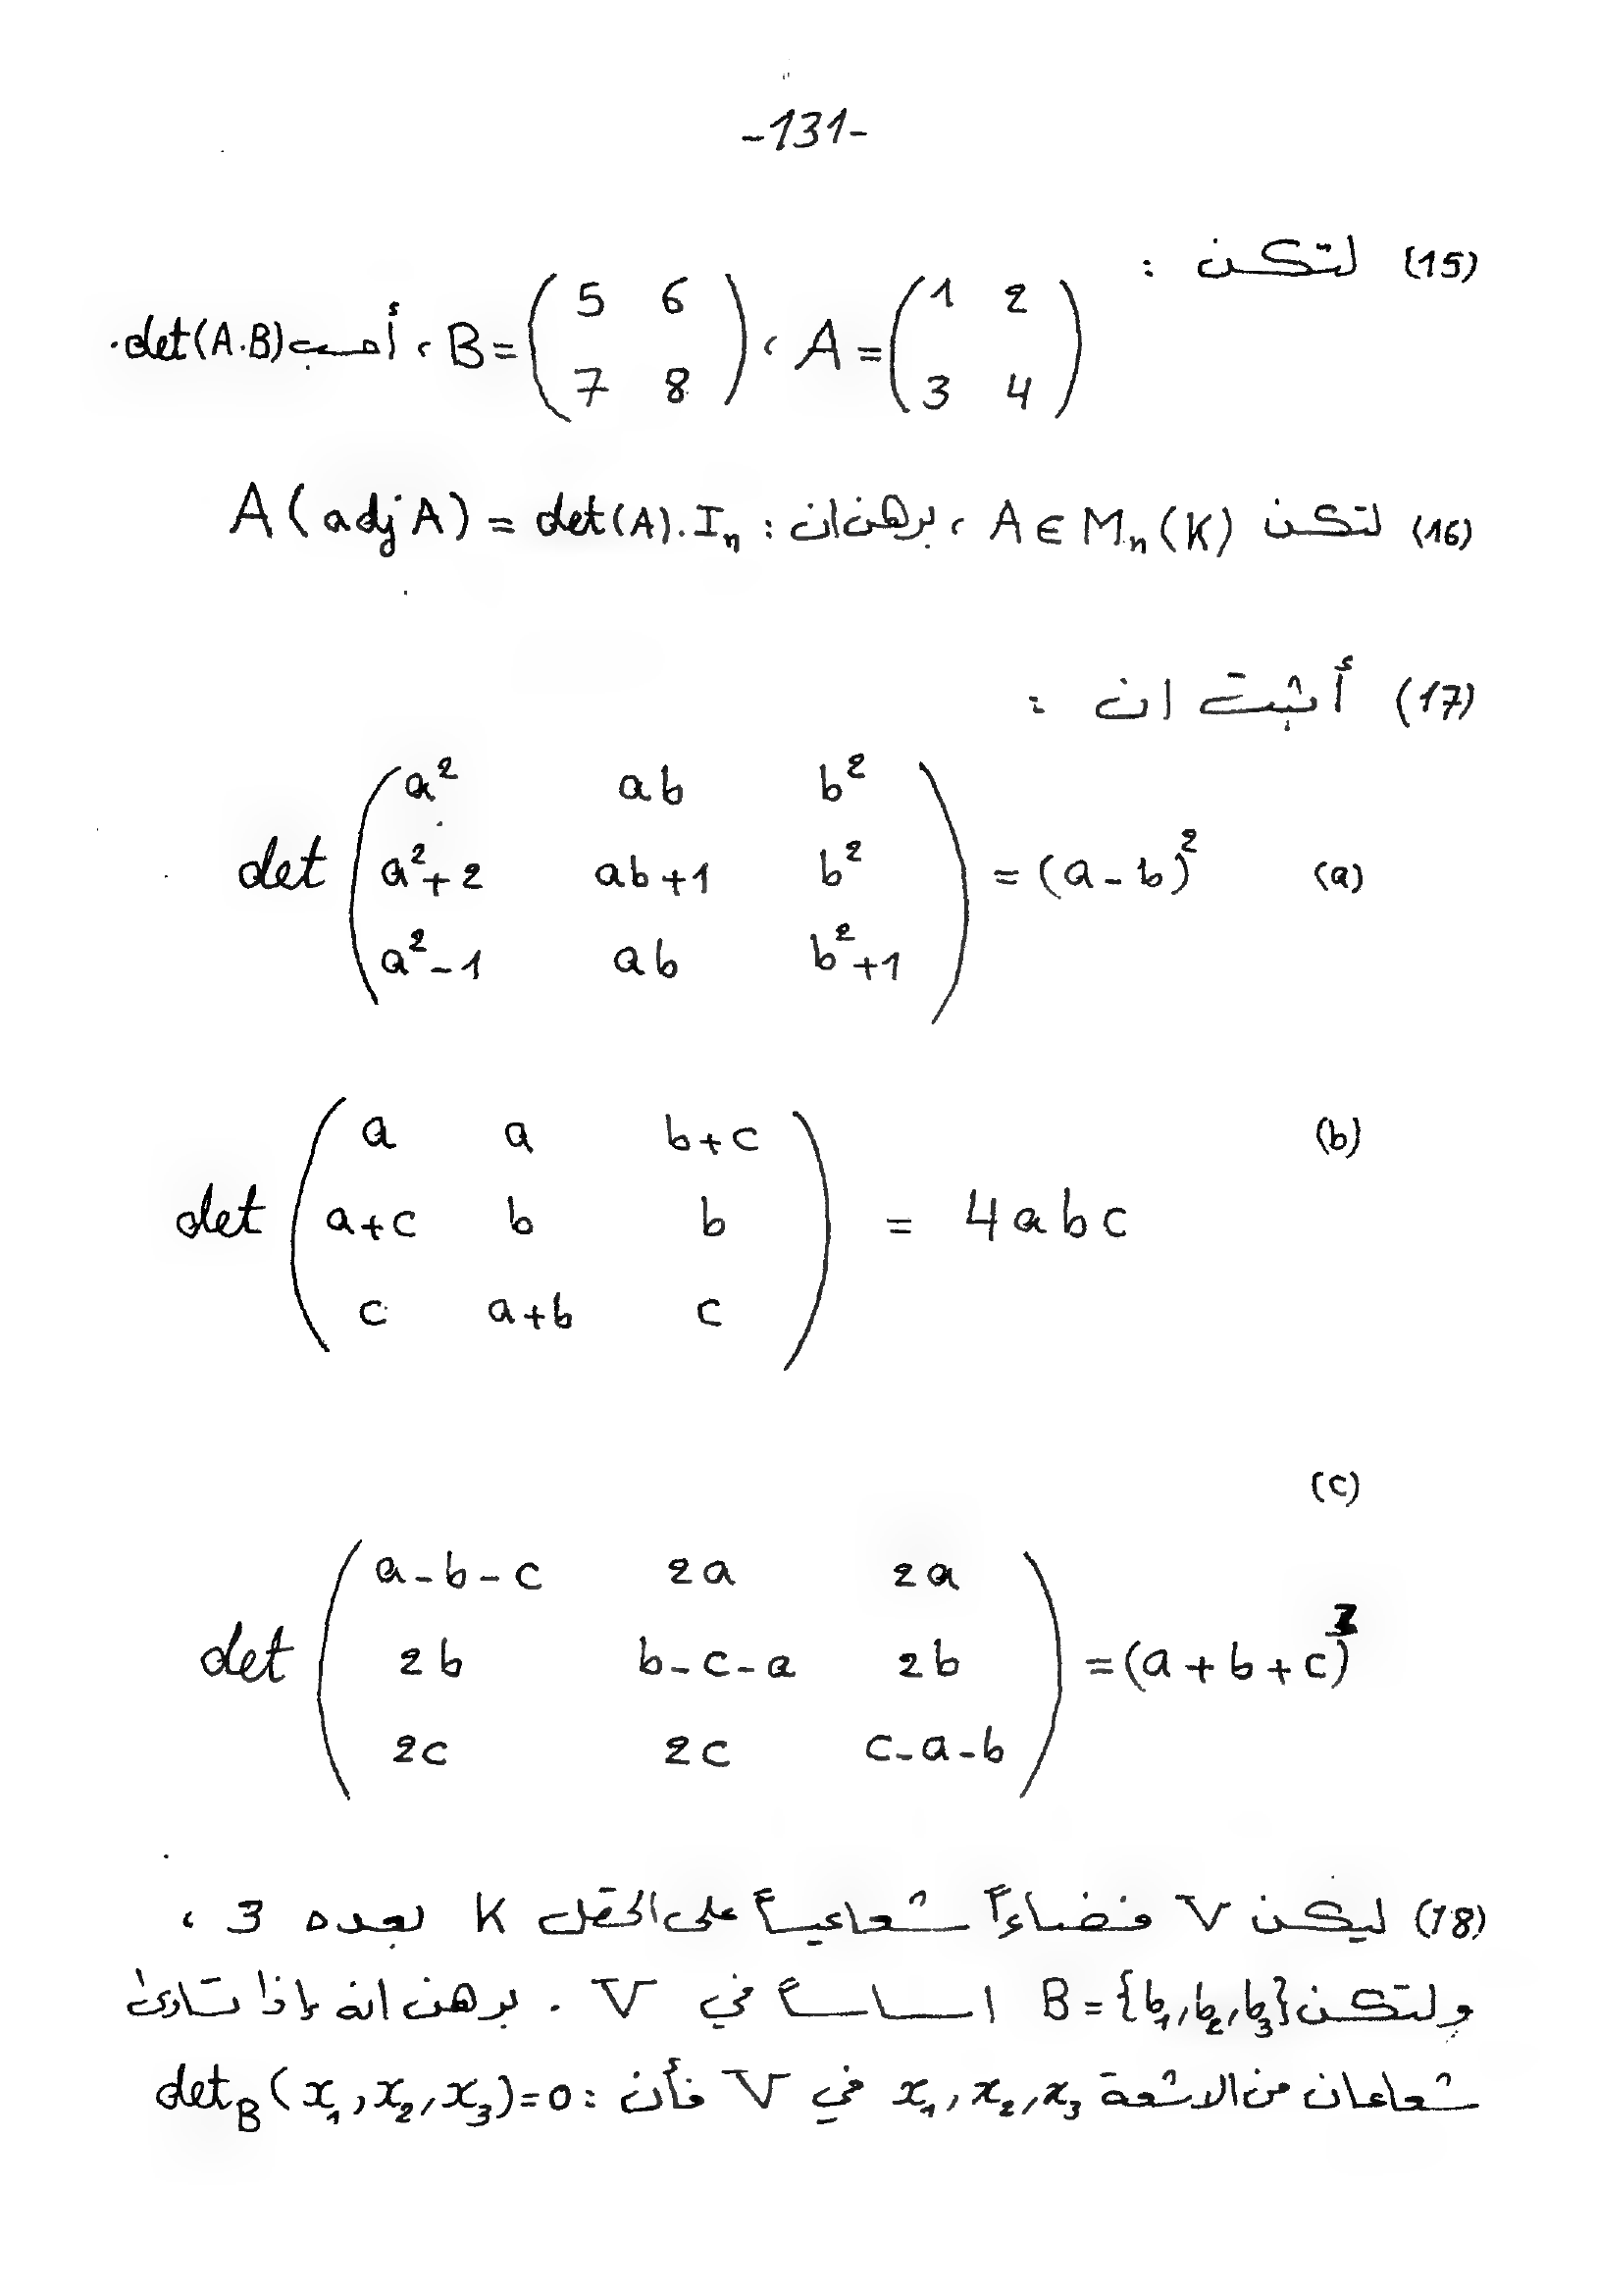 -131-
(15) لتكن :
A = ( 1 2 ; 3 4 ) ، B = ( 5 6 ; 7 8 ) ، أحسب det(A.B).
(16) لتكن A ∈ Mₙ(K) ، برهن ان : A(adj A) = det(A).Iₙ
(17) أثبت ان :
(a) det ( a² ab b² ; a²+2 ab+1 b² ; a²-1 ab b²+1 ) = (a-b)²
(b)
det ( a a b+c ; a+c b b ; c a+b c ) = 4abc
(c)
det ( a-b-c 2a 2a ; 2b b-c-a 2b ; 2c 2c c-a-b ) = (a+b+c)³
(18) ليكن V فضاءاً شعاعياً على الحقل K بعده 3 ،
ولتكن B={b₁,b₂,b₃} اساساً في V . برهن انه إذا تساوى
شعاعان من الاشعة x₁,x₂,x₃ في V فأن : det_B(x₁,x₂,x₃)=0